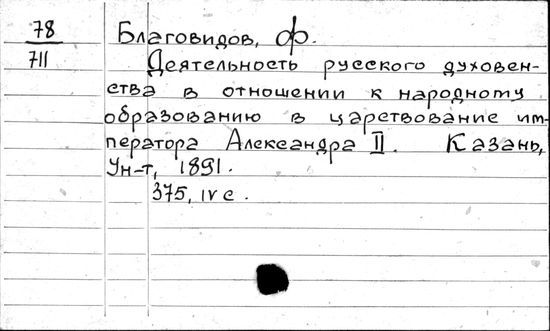 78
711
Благовидов, Ф.
Деятельность русского духовен-
ства в отношении к народному
образованию в царствование им-
ператора Александра II. Казань,
Ун-т, 1891.
375, IV с.